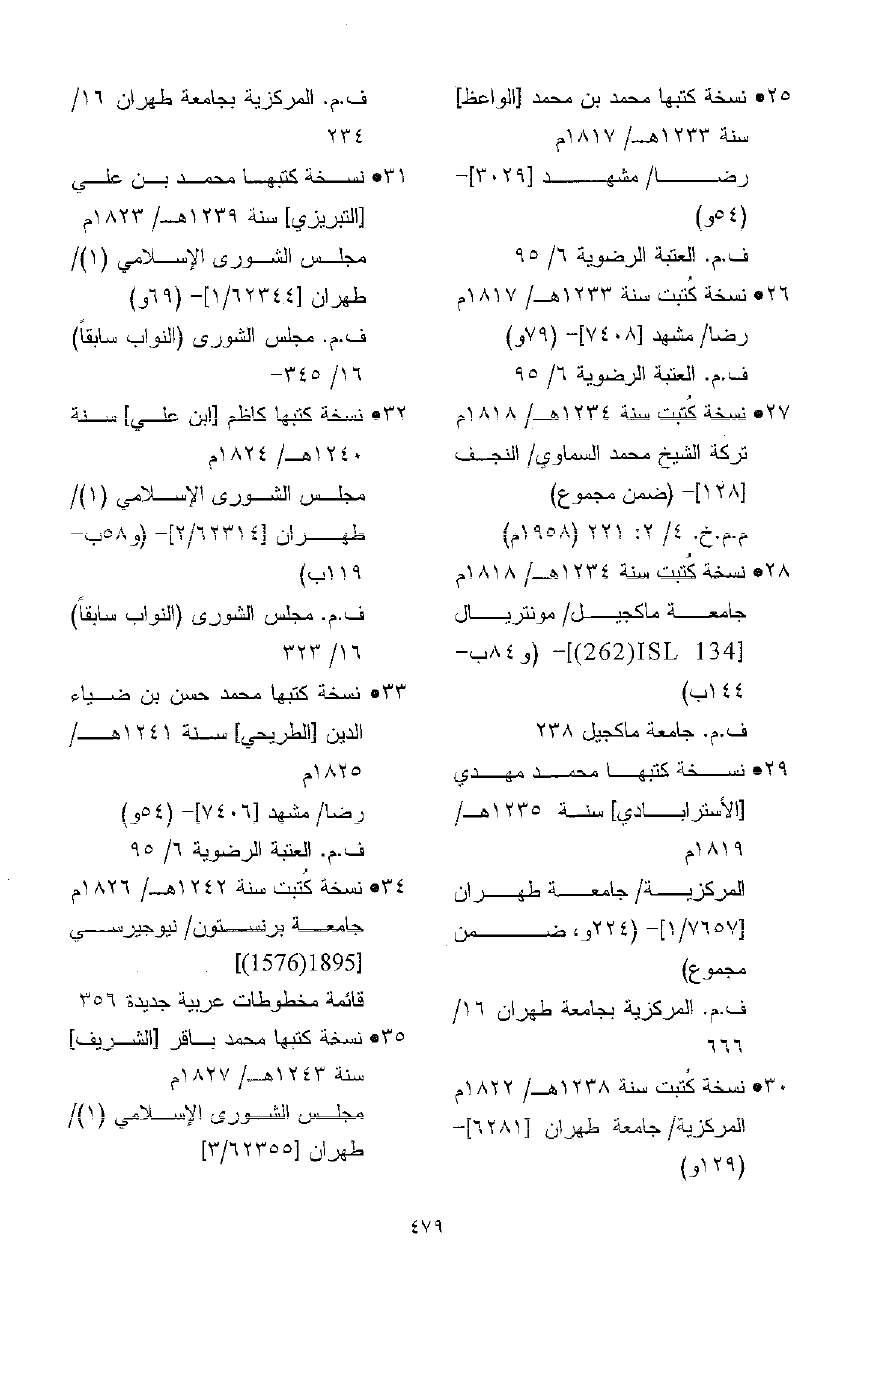 ٢٥• نسخة كتبها محمد بن محمد [الواعظ]
سنة ١٢٣٣هـ/ ١٨١٧م
رضا/ مشهد [٣٠٢٩]-
(٥٤و)
ف.م. العتبة الرضوية ٦/ ٩٥
٢٦• نسخة كُتبت سنة ١٢٣٣هـ/ ١٨١٧م
رضا/ مشهد [٧٤٠٨]- (٧٩و)
ف.م. العتبة الرضوية ٦/ ٩٥
٢٧• نسخة كُتبت سنة ١٢٣٤هـ/ ١٨١٨م
تركة الشيخ محمد السماوي/ النجف
[١٢٨]- (ضمن مجموع)
م.م.خ. ٤/ ٢: ٢٢١ (١٩٥٨م)
٢٨• نسخة كُتبت سنة ١٢٣٤هـ/ ١٨١٨م
جامعة ماكجيل/ مونتريال
[ISL 134(262)]- (و٨٤ب-
١٤٤ب)
ف.م. جامعة ماكجيل ٢٣٨
٢٩• نسخة كتبها محمد مهدي
[الأسترابادي] سنة ١٢٣٥هـ/
١٨١٩م
المركزية/ جامعة طهران
[١/٧٦٥٧]- (٢٢٤و، ضمن
مجموع)
ف.م. المركزية بجامعة طهران ١٦/
٦٦٦
٣٠• نسخة كُتبت سنة ١٢٣٨هـ/ ١٨٢٢م
المركزية/ جامعة طهران [٦٢٨١]-
(١٢٩و)
ف.م. المركزية بجامعة طهران ١٦/
٢٣٤
٣١• نسخة كتبها محمد بن علي
[التبريزي] سنة ١٢٣٩هـ/ ١٨٢٣م
مجلس الشورى الإسلامي (١)/
طهران [١/٦٢٣٤٤]- (٦٩و)
ف.م. مجلس الشورى (النواب سابقاً)
١٦/ ٣٤٥-
٣٢• نسخة كتبها كاظم [ابن علي] سنة
١٢٤٠هـ/ ١٨٢٤م
مجلس الشورى الإسلامي (١)/
طهران [٢/٦٢٣١٤]- (و٥٨ب-
١١٩ب)
ف.م. مجلس الشورى (النواب سابقاً)
١٦/ ٣٢٣
٣٣• نسخة كتبها محمد حسن بن ضياء
الدين [الطريحي] سنة ١٢٤١هـ/
١٨٢٥م
رضا/ مشهد [٧٤٠٦]- (٥٤و)
ف.م. العتبة الرضوية ٦/ ٩٥
٣٤• نسخة كُتبت سنة ١٢٤٢هـ/ ١٨٢٦م
جامعة برنستون/ نيوجيرسي
[1895(1576)]
قائمة مخطوطات عربية جديدة ٣٥٦
٣٥• نسخة كتبها محمد باقر [الشريف]
سنة ١٢٤٣هـ/ ١٨٢٧م
مجلس الشورى الإسلامي (١)/
طهران [٣/٦٢٣٥٥]
٤٧٩